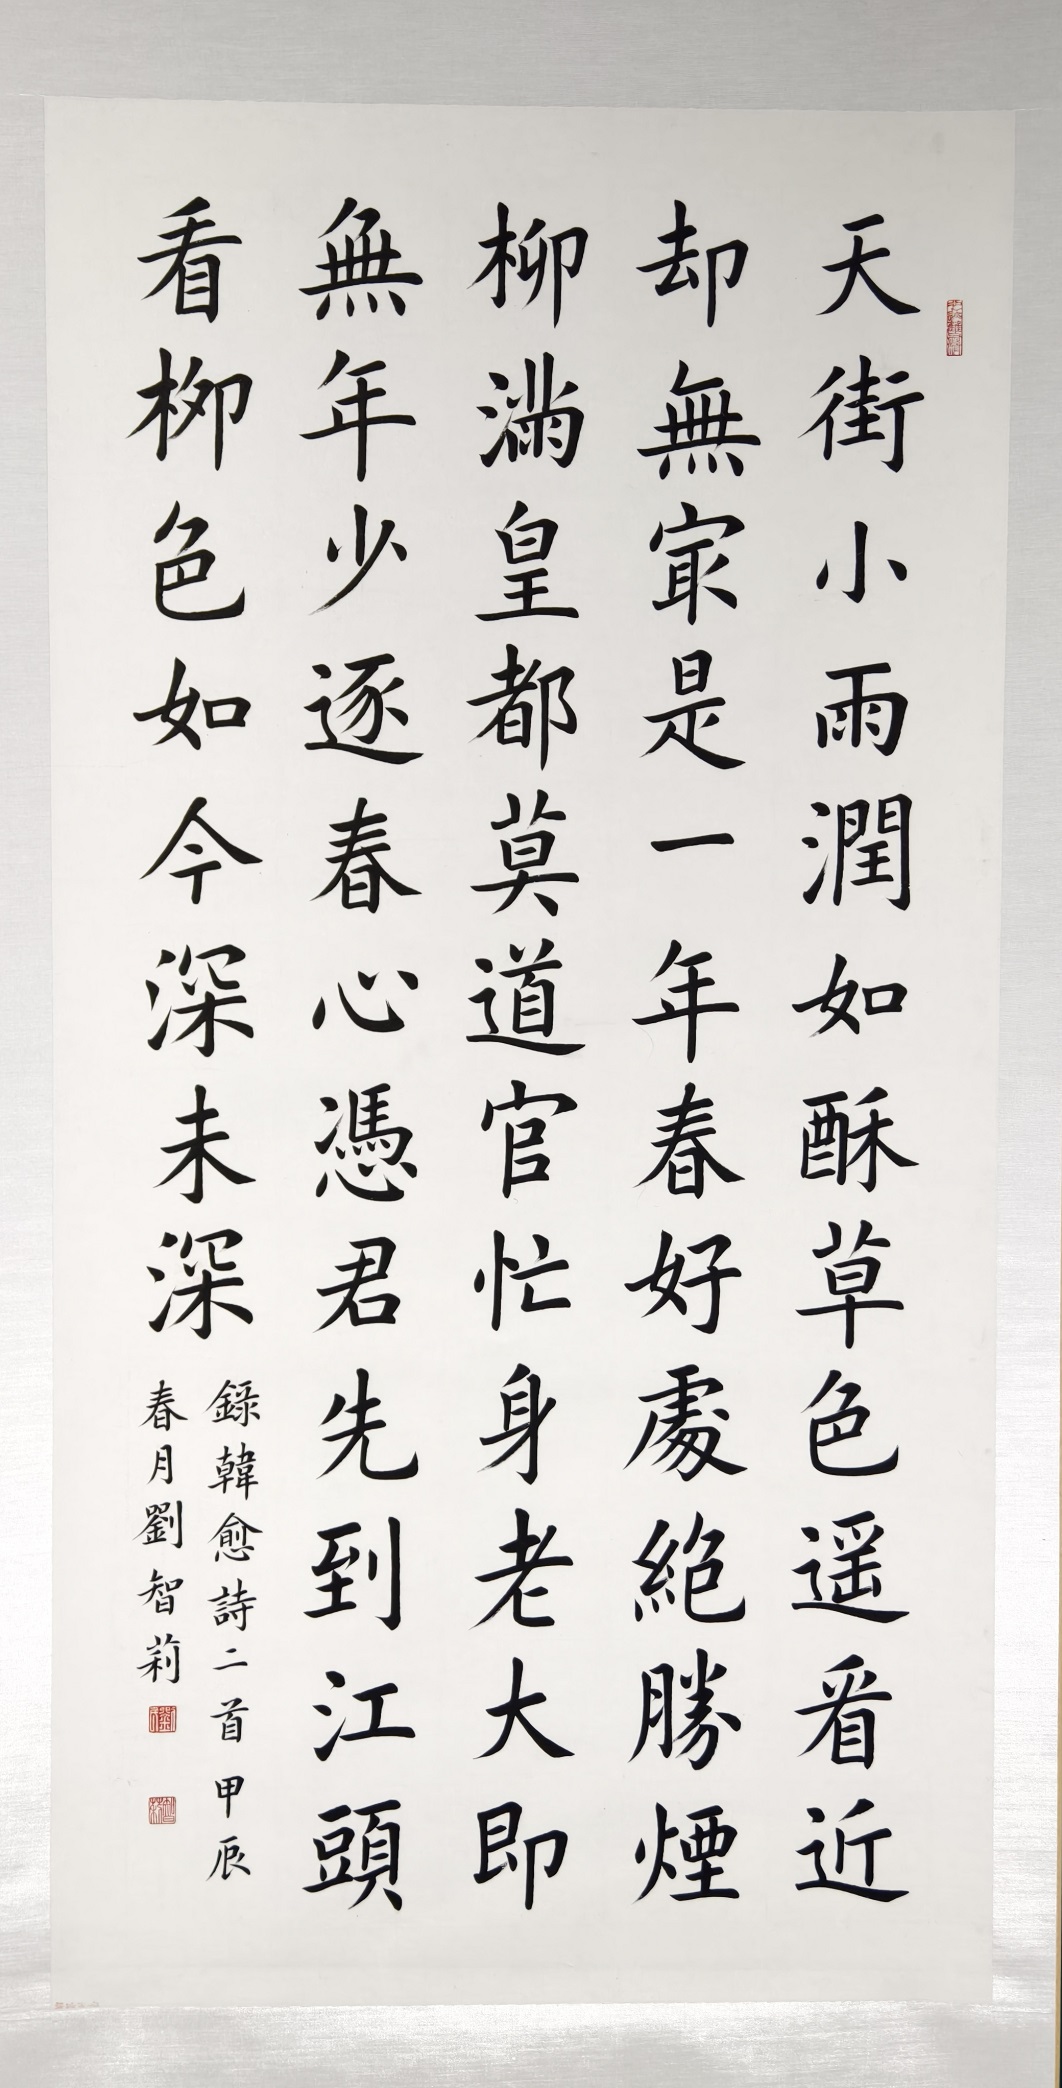 天街小雨潤如酥草色遥看近
却無㝡是一年春好處絶勝煙
柳滿皇都莫道官忙身老大即
無年少逐春心憑君先到江頭
看柳色如今深未深
錄韓愈詩二首甲辰
春月劉智莉